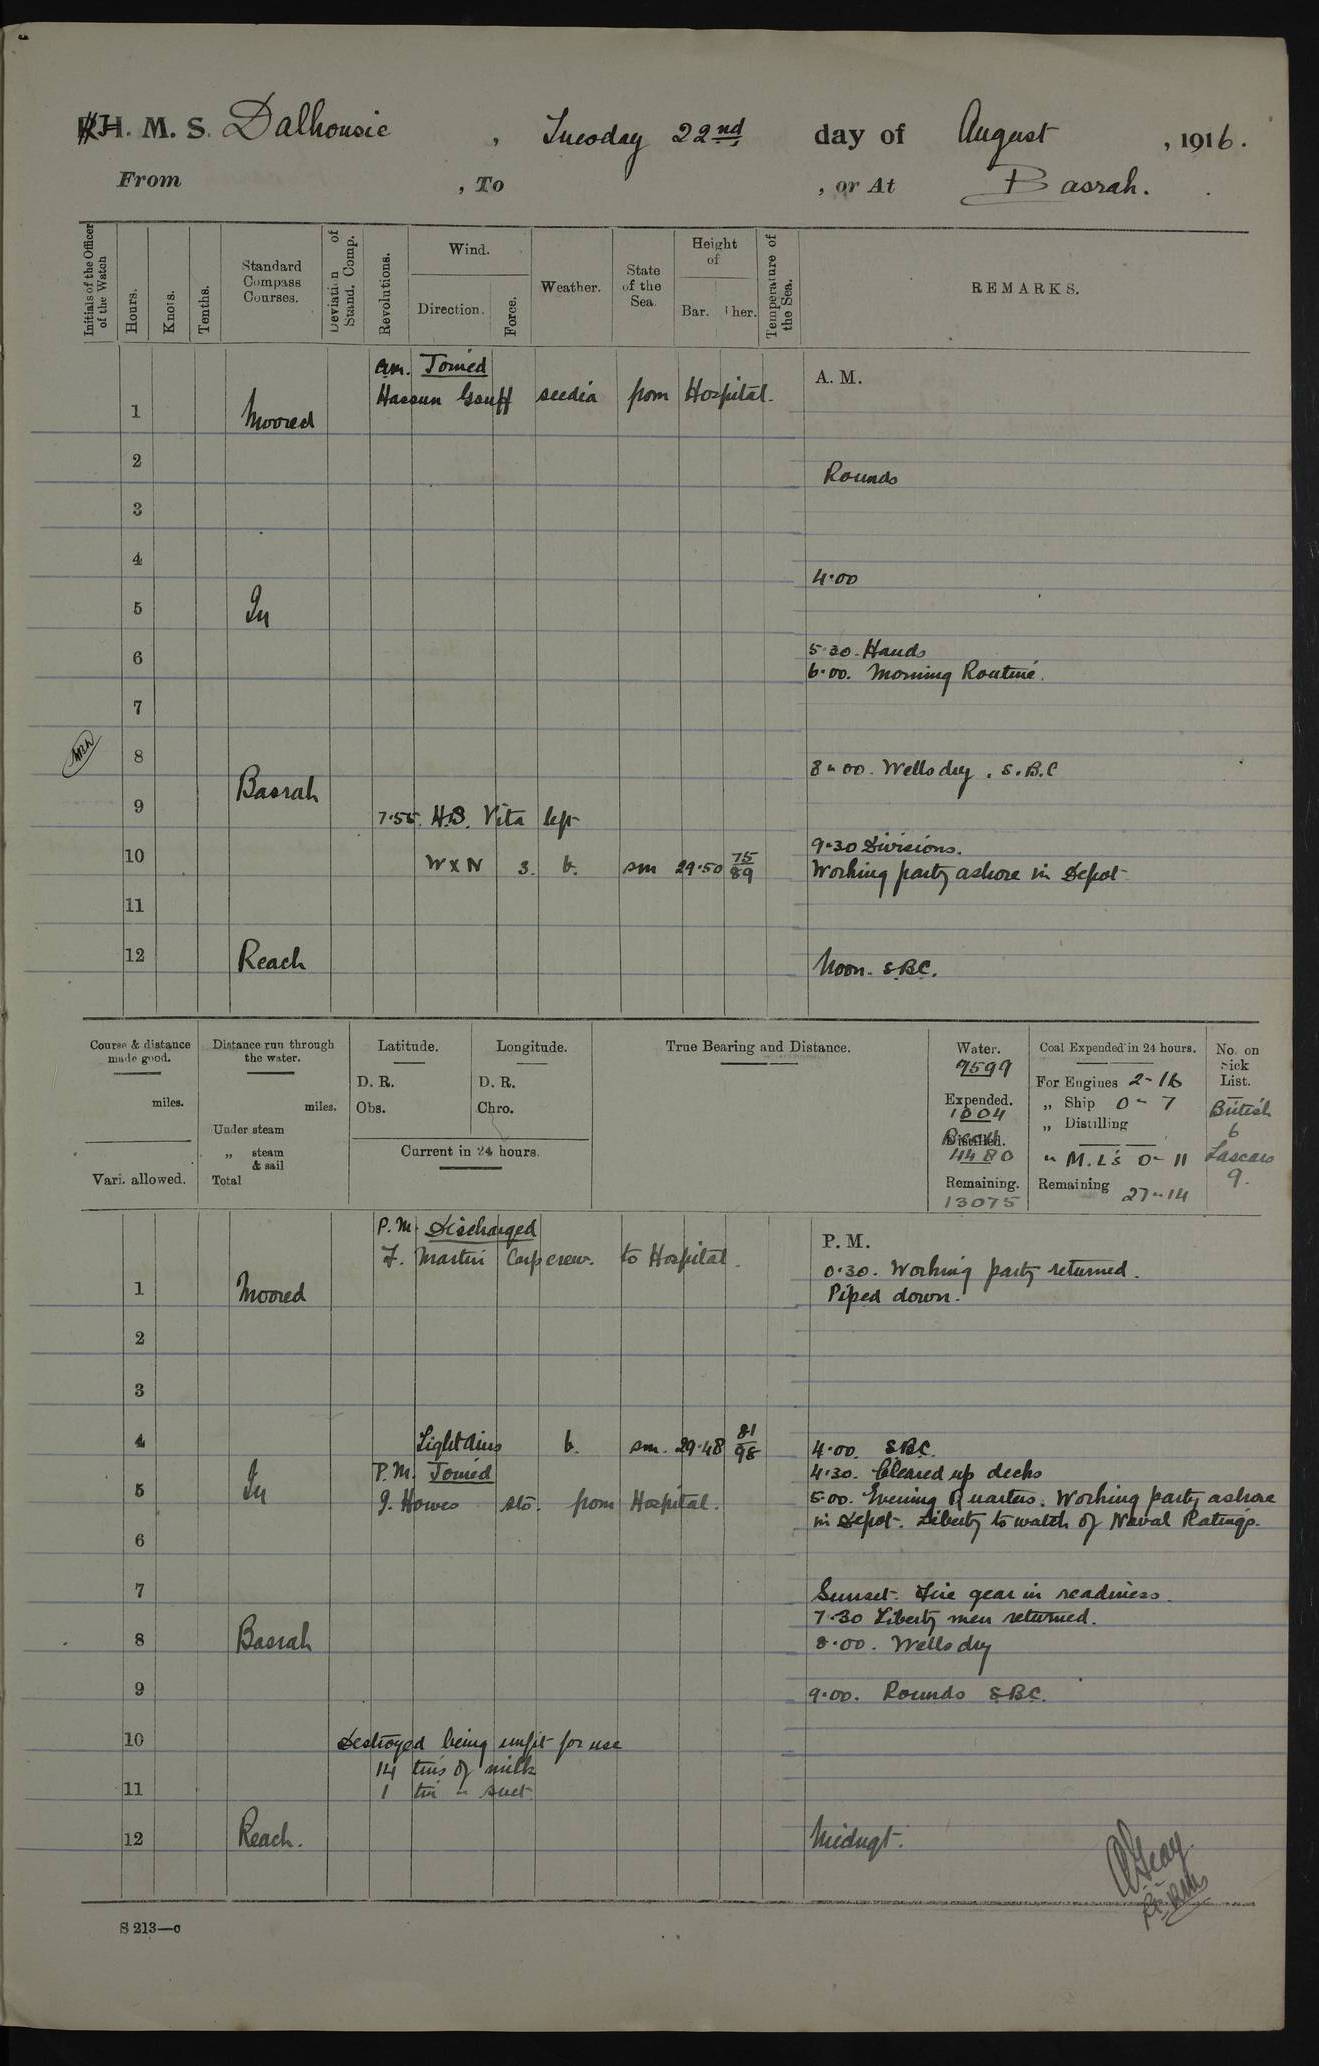 H. M. S. Dalhousie, Tuesday 22nd day of August, 1916.
From , To , or At Basrah.
Initials of the Officer of the Watch
Hours.
Knots.
Tenths.
Standard Compass Courses.
Deviation of Stand. Comp.
Revolutions.
Wind.
Direction.
Force.
Weather.
State of the Sea.
Height of
Bar. Ther.
Temperature of the Sea.
REMARKS.
am. Joined
Hassun seedia from Hospital.
A. M.
1 Moored
2
Rounds
3
4
4.00
5 In
6 5.30. Hands
6.00. Morning Routine.
7
8
8.00. Wells dry. S.B.C
Basrah
9
7.55. H.S. Vita left
9.30 Divisions.
10 W x N 3. b. sm 29.50 75/89 Working party ashore in Depot
11
12 Reach Noon. S.B.C.
Course & distance made good.
miles.
Vari. allowed.
Distance run through the water.
miles.
Under steam
„ steam & sail
Total
Latitude.
D. R.
Obs.
Longitude.
D. R.
Chro.
Current in 24 hours.
True Bearing and Distance.
Water.
9599
Expended.
1004
Distilled.
4480
Remaining.
13075
Coal Expended in 24 hours.
For Engines 2-16
„ Ship 0-7
„ Distilling
" M.L's 0-11
Remaining 27-14
No. on Sick List.
British
6
Lascars
9.
P.M. Discharged
F. Martin Carp crew. to Hospital.
P. M.
0.30. Working party returned.
1 Moored Piped down.
2
3
4 Light airs b. sm. 29.48 81/98 4.00. S.B.C.
P.M. Joined 4.30. Cleared up decks
5 In J. Howes sto. from Hospital. 5.00. Evening Quarters. Working party ashore
in Depot. Liberty to watch of Naval Ratings.
6
7 Sunset. Fire gear in readiness.
7.30 Liberty men returned.
8 Basrah 8.00. Wells dry
9 9.00. Rounds S.B.C.
10 Destroyed being unfit for use
14 tins of milk
11 1 tin " suet
12 Reach. Midngt.
S 213—c